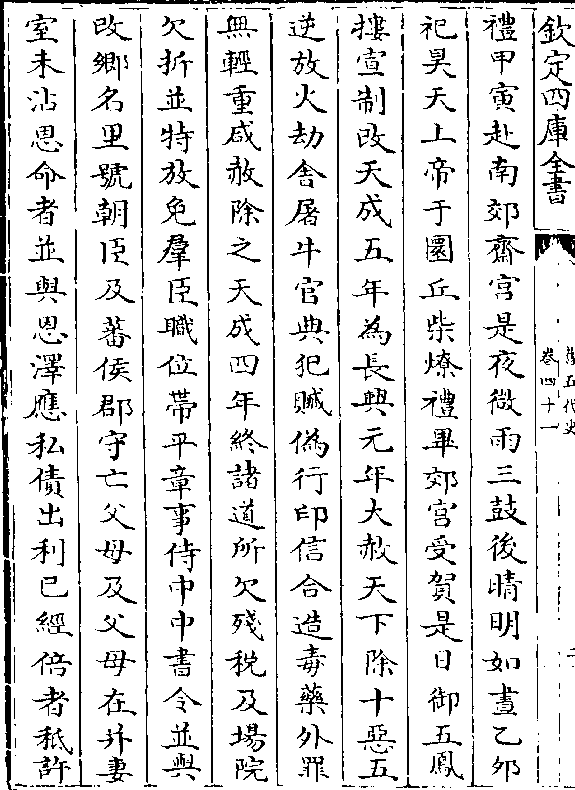 欽定四庫全書
舊五代史
卷四十一
二
禮甲寅赴南郊齋宮是夜微雨三鼓後晴明如晝乙夘
祀昊天上帝于圜丘柴燎禮畢郊宮受賀是日御五鳳
樓宣制改天成五年為長興元年大赦天下除十惡五
逆放火劫舍屠牛官典犯贓偽行印信合造毒藥外罪
無輕重咸赦除之天成四年終諸道所欠殘稅及場院
欠折並特放免羣臣職位帶平章事侍中中書令並與
改鄉名里號朝臣及蕃侯郡守亡父母及父母在并妻
室未沾恩命者並與恩澤應私債出利已經倍者秪許